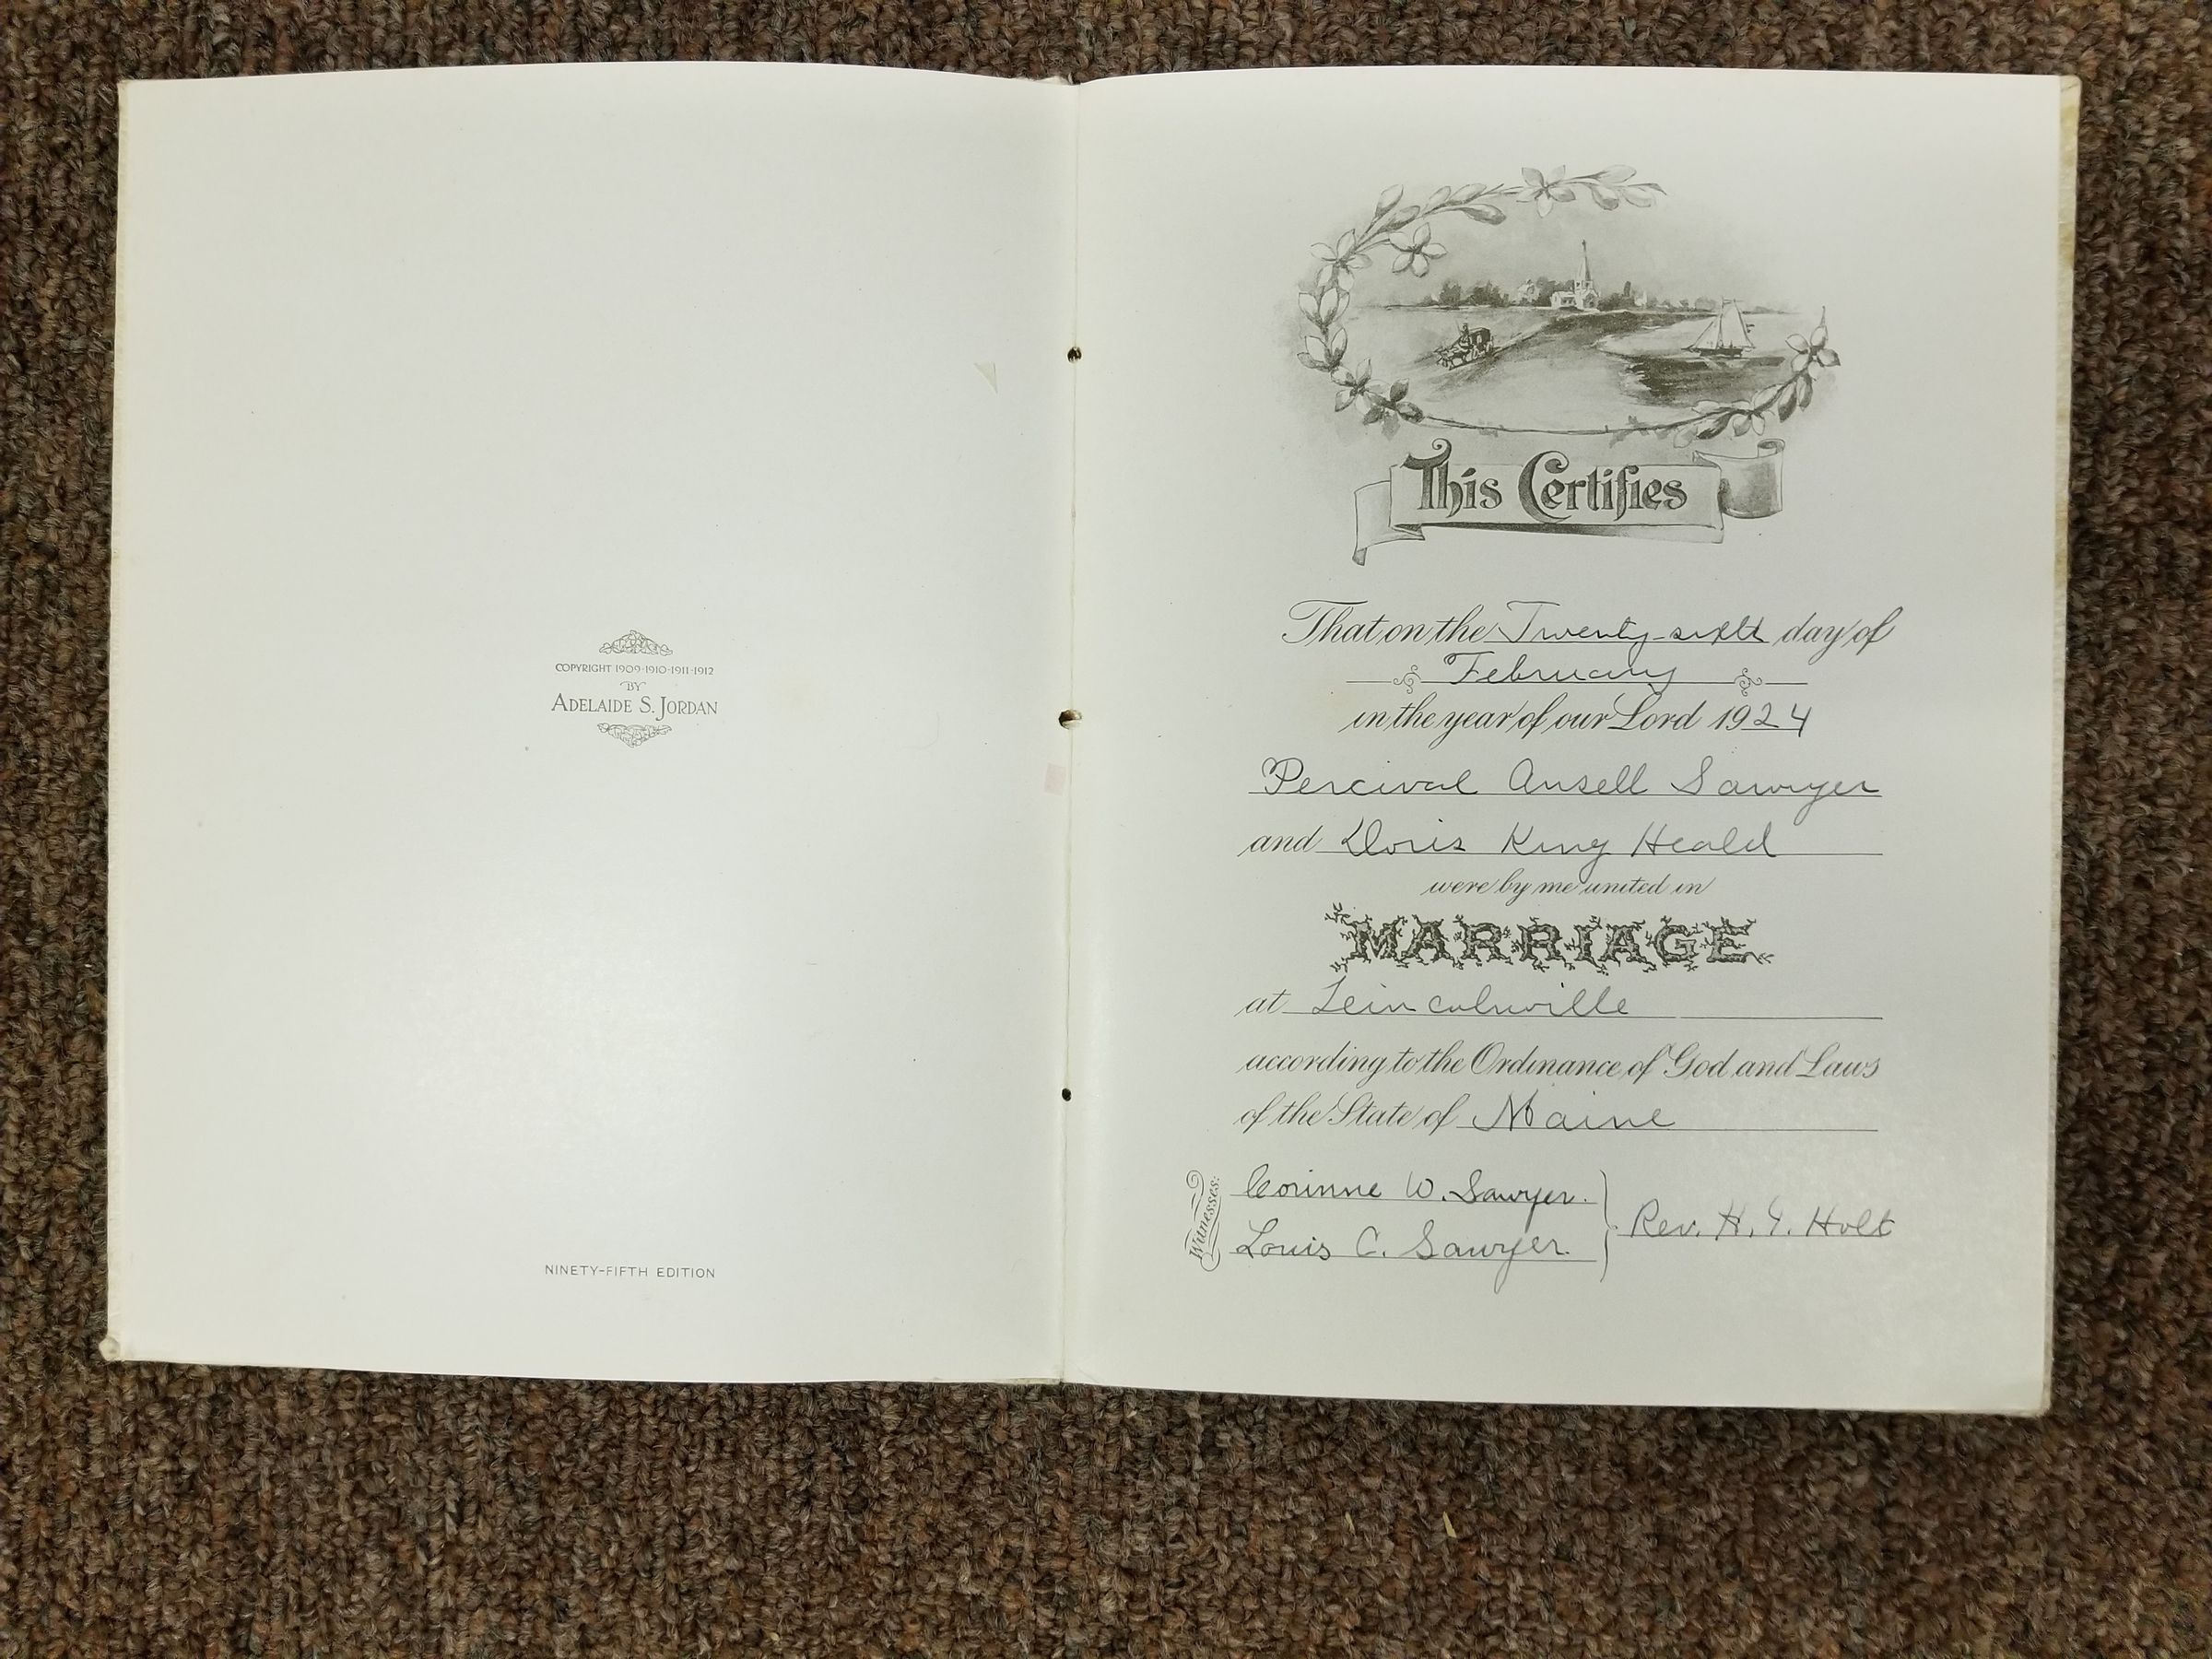 COPYRIGHT 1909-1910-1911-1912
BY
ADELAIDE S. JORDAN
NINETY-FIFTH EDITION
This Certifies
That on the Twenty-sixth day of
February
in the year of our Lord 1924
Percival Ansell Sawyer
and Doris King Heald
were by me united in
MARRIAGE
at Leincolnville
according to the Ordinance of God and Laws
of the State of Maine
Witnesses:
Corinne W. Sawyer.
Louis C. Sawyer.
Rev. H. I. Holt